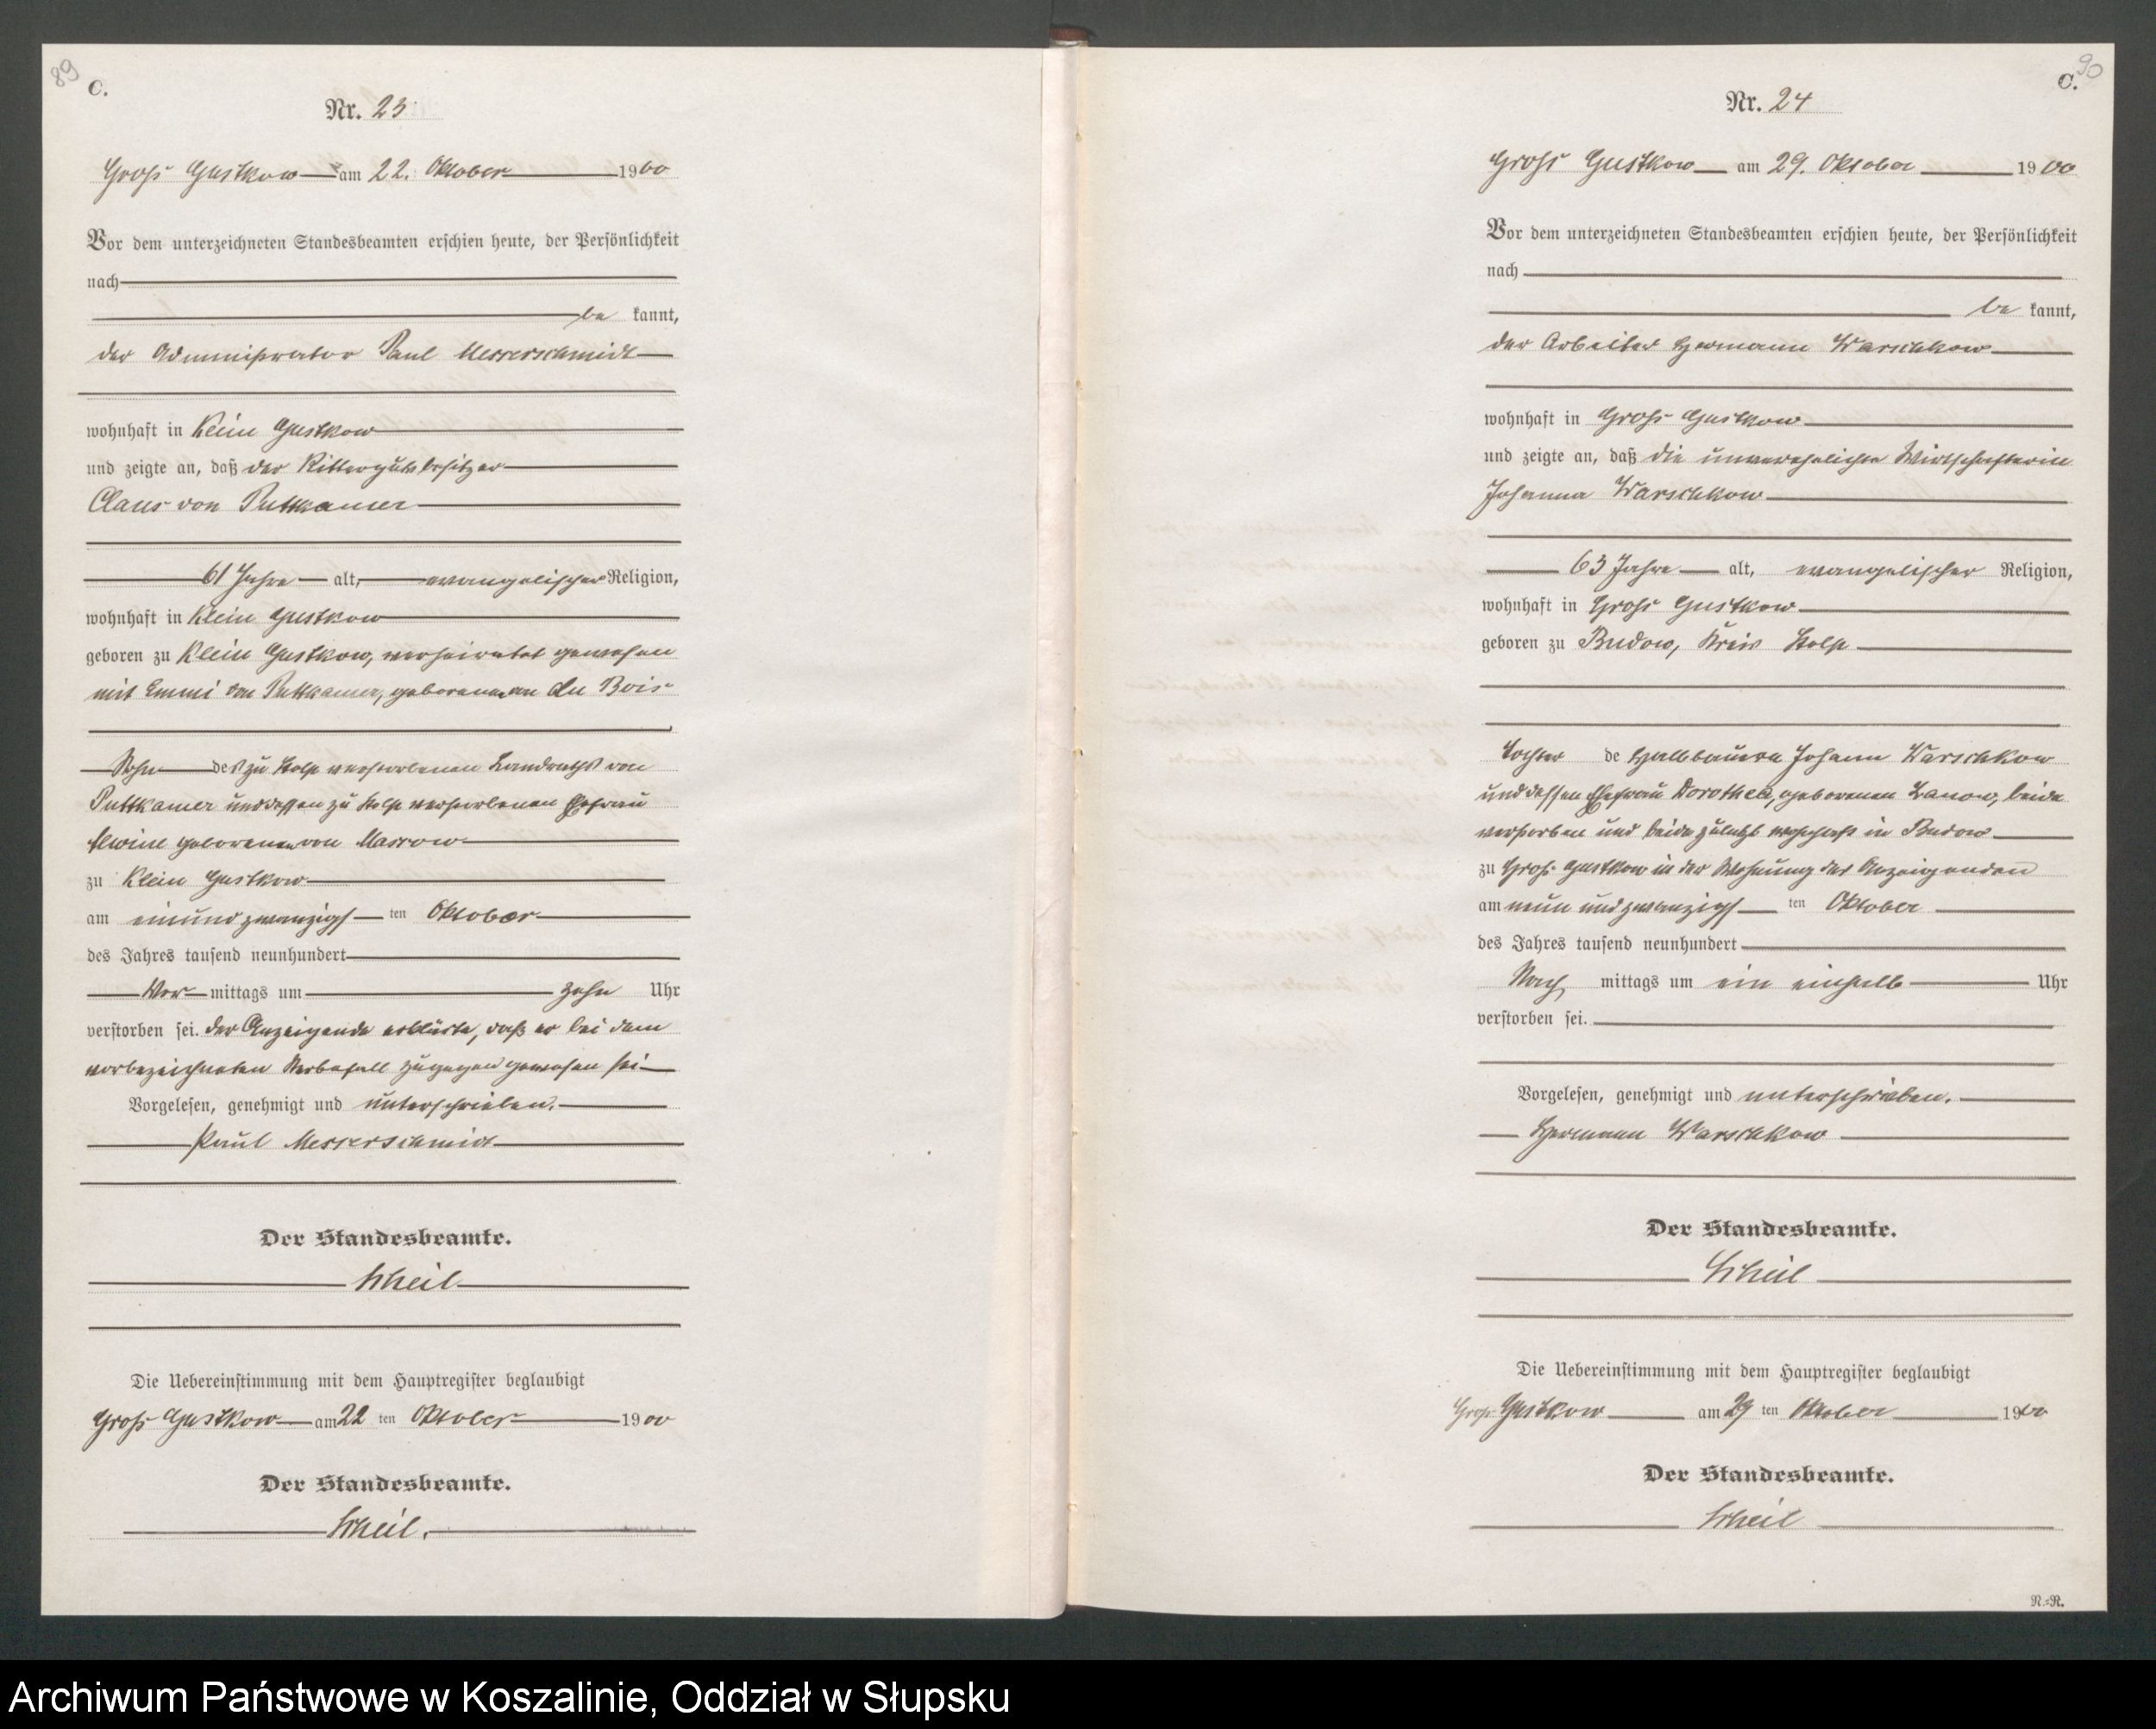 89
C.
Nr. 23
Groß Gustkow am 22. Oktober 1900
Vor dem unterzeichneten Standesbeamten erschien heute, der Persönlichkeit
nach
be kannt,
der Administrator Paul Messerschmidt
wohnhaft in Klein Gustkow
und zeigte an, daß der Rittergutsbesitzer
Claus von Puttkamer
61 Jahre alt, evangelischer Religion,
wohnhaft in Klein Gustkow
geboren zu Klein Gustkow, verheiratet gewesen
mit Emmi von Puttkamer, geborenen du Bois
Sohn des zu Stolp verstorbenen Landraths von
Puttkamer und dessen zu Stolp verstorbenen Ehefrau
geborenen von Massow
zu Klein Gustkow
am einundzwanzigs ten Oktober
des Jahres tausend neunhundert
Vor mittags um zehn Uhr
verstorben sei. Der Anzeigende erklärte, daß er bei dem
vorbezeichneten Sterbefall zugegen gewesen sei
Vorgelesen, genehmigt und unterschrieben.
Paul Messerschmidt
Der Standesbeamte.
Scheil
Die Uebereinstimmung mit dem Hauptregister beglaubigt
Groß Gustkow am 22 ten Oktober 1900
Der Standesbeamte.
Scheil.
90
C.
Nr. 24
Groß Gustkow am 29. Oktober 1900
Vor dem unterzeichneten Standesbeamten erschien heute, der Persönlichkeit
nach
be kannt,
der Arbeiter Hermann Warschkow
wohnhaft in Groß Gustkow
und zeigte an, daß die unverehelichte Wirtschafterin
Johanna Warschkow
63 Jahre alt, evangelischer Religion,
wohnhaft in Groß Gustkow
geboren zu Budow, Kreis Stolp
Tochter de Halbbauern Johann Warschkow
und dessen Ehefrau Dorothea, geborenen Lanow, beide
verstorben und beide zuletzt wohnhaft in Budow
zu Groß Gustkow in der Wohnung des Anzeigenden
am neun und zwanzigs ten Oktober
des Jahres tausend neunhundert
Nach mittags um ein einhalb Uhr
verstorben sei.
Vorgelesen, genehmigt und unterschrieben.
Hermann Warschkow
Der Standesbeamte.
Scheil
Die Uebereinstimmung mit dem Hauptregister beglaubigt
Groß Gustkow am 29 ten Oktober 1900
Der Standesbeamte.
Scheil
N.=N.
Archiwum Państwowe w Koszalinie, Oddział w Słupsku